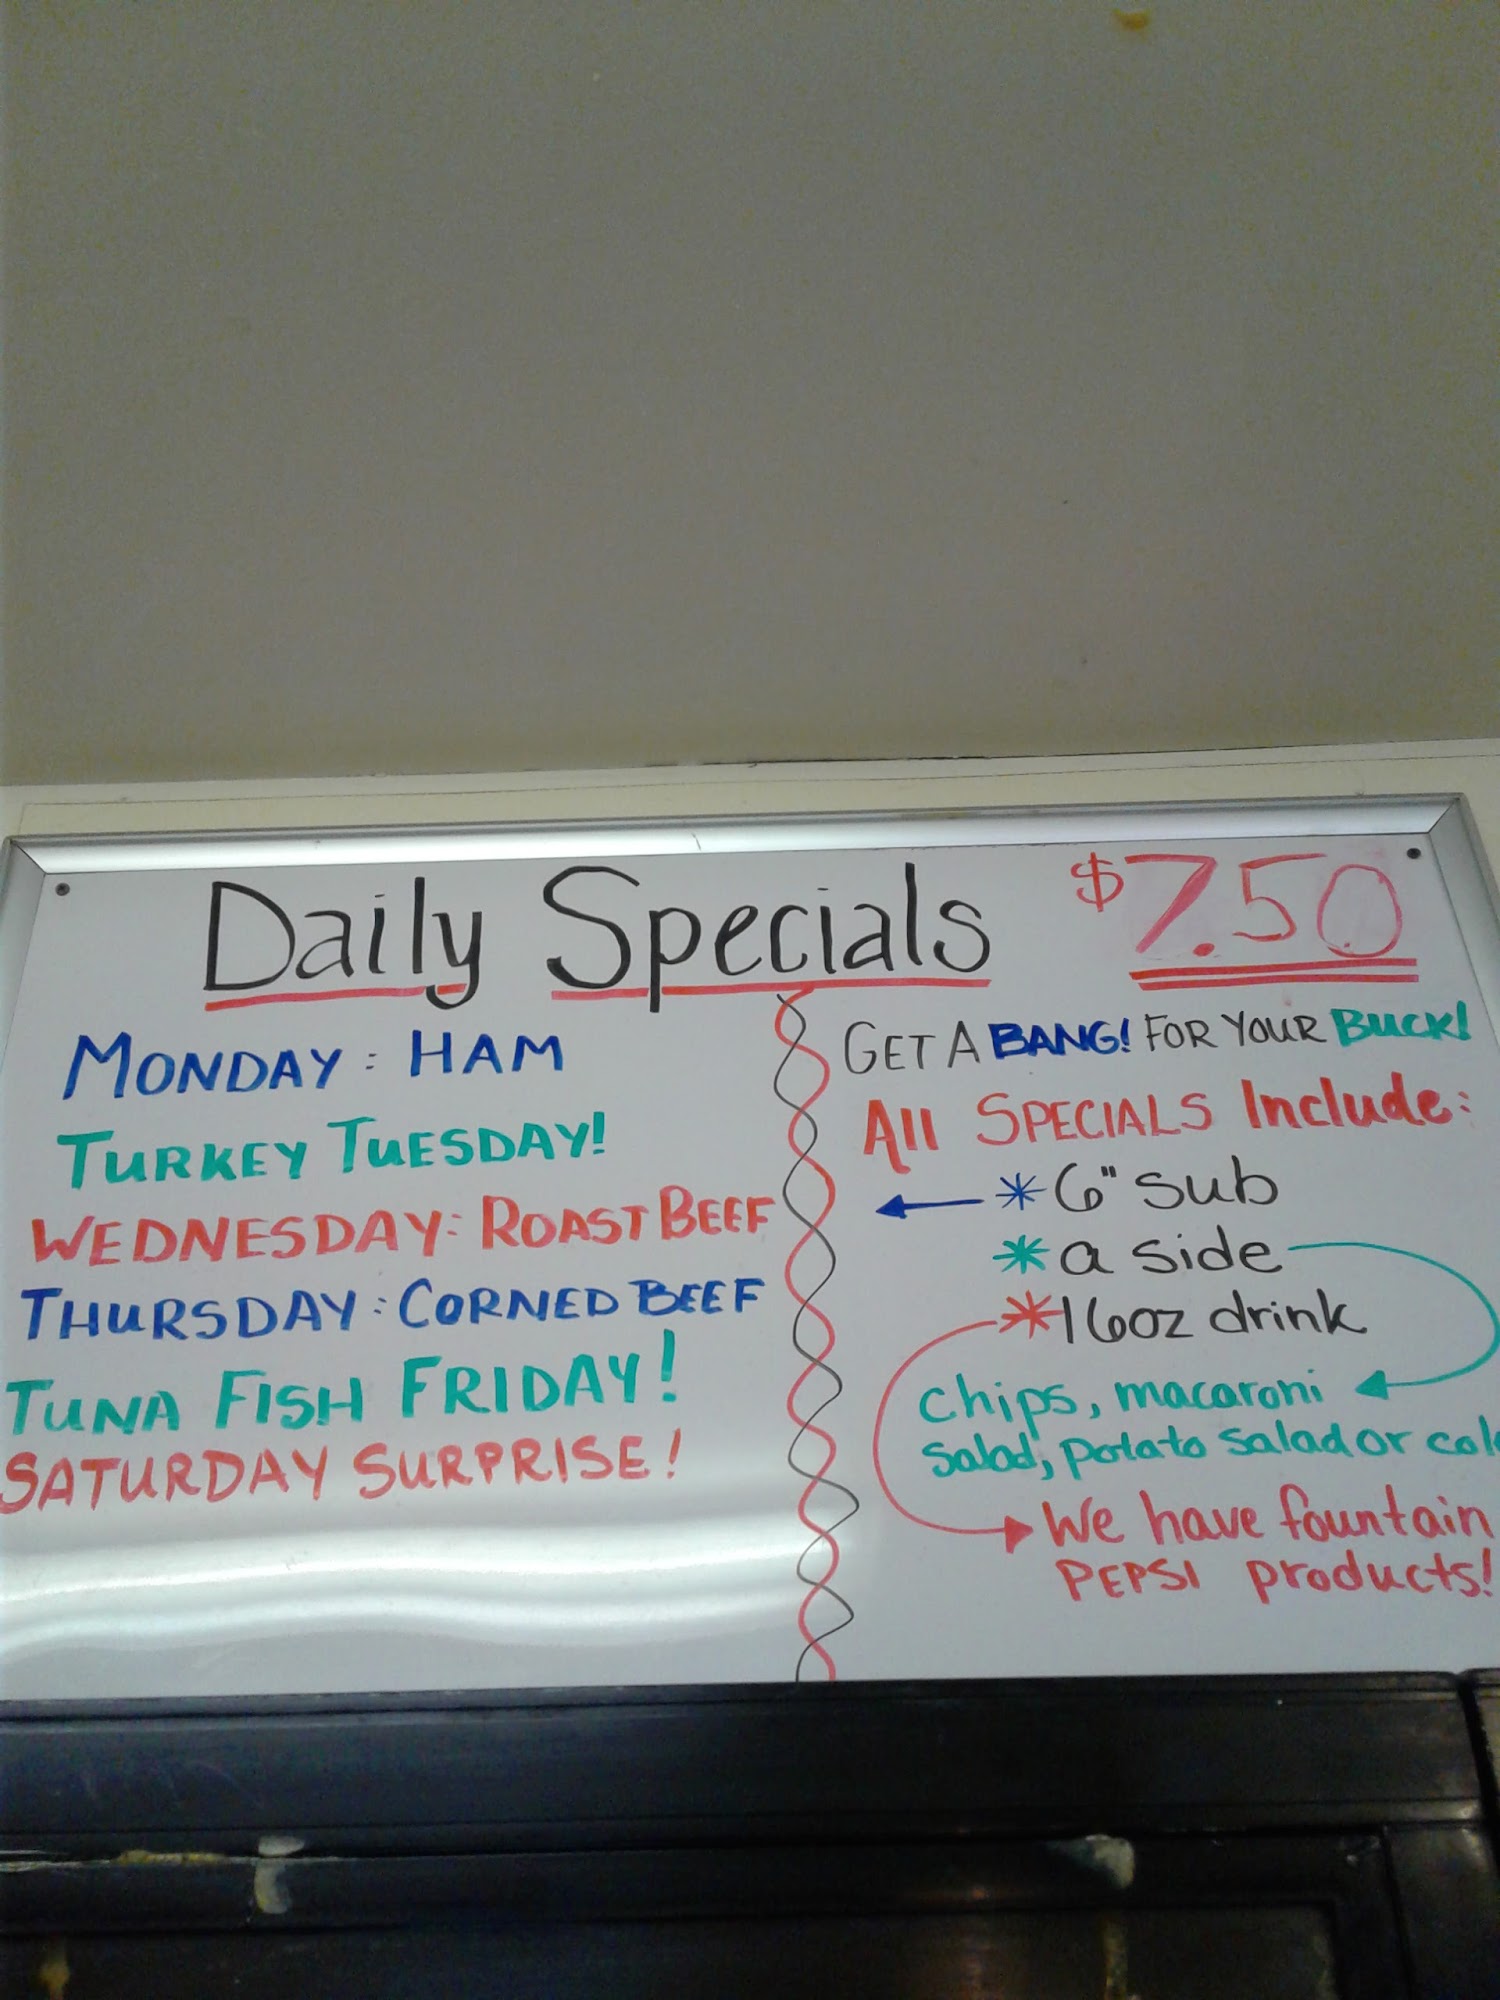 Daily Specials $7.50
MONDAY: HAM
TURKEY TUESDAY!
WEDNESDAY: ROAST BEEF
THURSDAY: CORNED BEEF
TUNA FISH FRIDAY!
SATURDAY SURPRISE!
GET A BANG! FOR YOUR BUCK!
All SPECIALS Include:
* 6" sub
* a side
* 16oz drink
chips, macaroni
salad, potato salad or
We have fountain
PEPSI products!